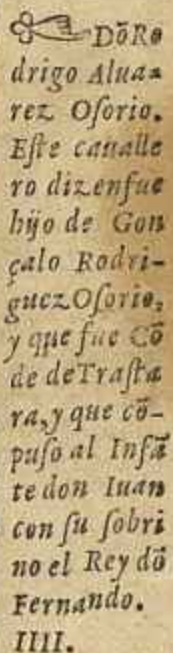 ☞ Dō Ro
drigo Aluaa
rez Oſorio.
Eſte caualle
ro dizenfue
hijo de Gon
çalo Rodri-
guez Oſorio,
y que fue Cō
de deTraſta
ra, y que cō-
puſo al Infā
te don Iuan
con ſu ſobri
no el Rey dō
Fernando.
IIII.